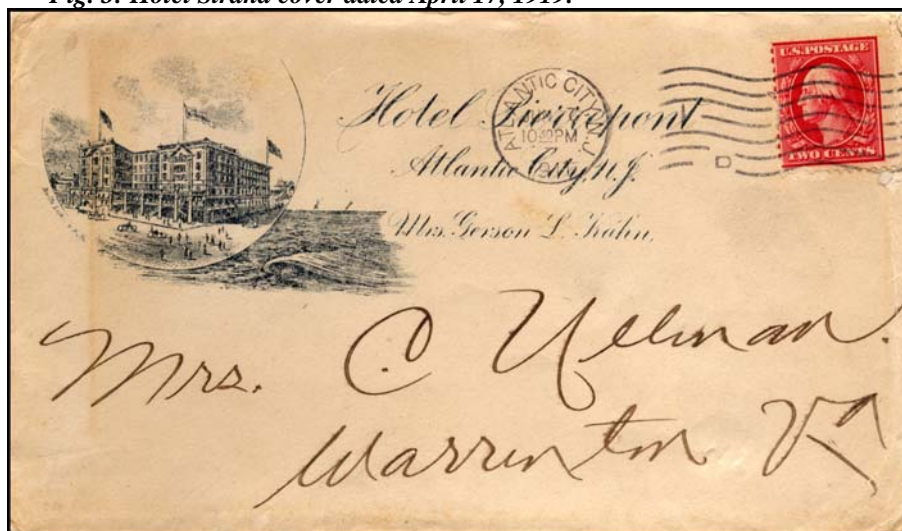 Fig. 5: Hotel Strand cover dated April 17, 1919.
Hotel Pierrepont
Atlantic City, N.J.
Mrs. Gerson L. Kahn,
ATLANTIC CITY, N.J.
10 PM
D
U.S. POSTAGE
TWO CENTS
Mrs. C Ullman.
Warrenton Va